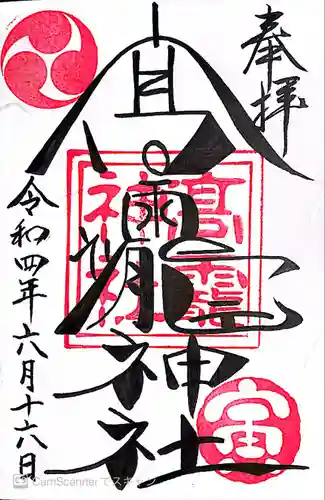 奉拝
高龗神社
高龗
神社
令和四年六月十六日
CamScannerでスキャン